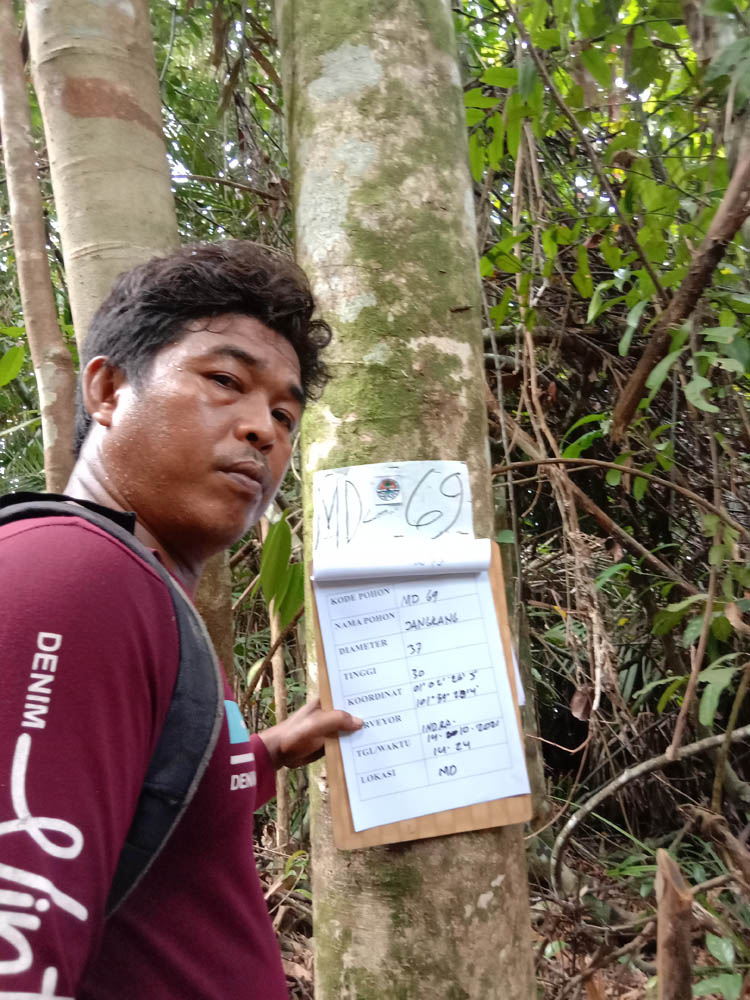 MD 69
KODE POHON MD 69
NAMA POHON JANGKANG
DIAMETER 37
TINGGI 30
KOORDINAT
SURVEYOR INDRA.
TGL/WAKTU 14-10-2021
14.24
LOKASI MD
DENIM
DENIM